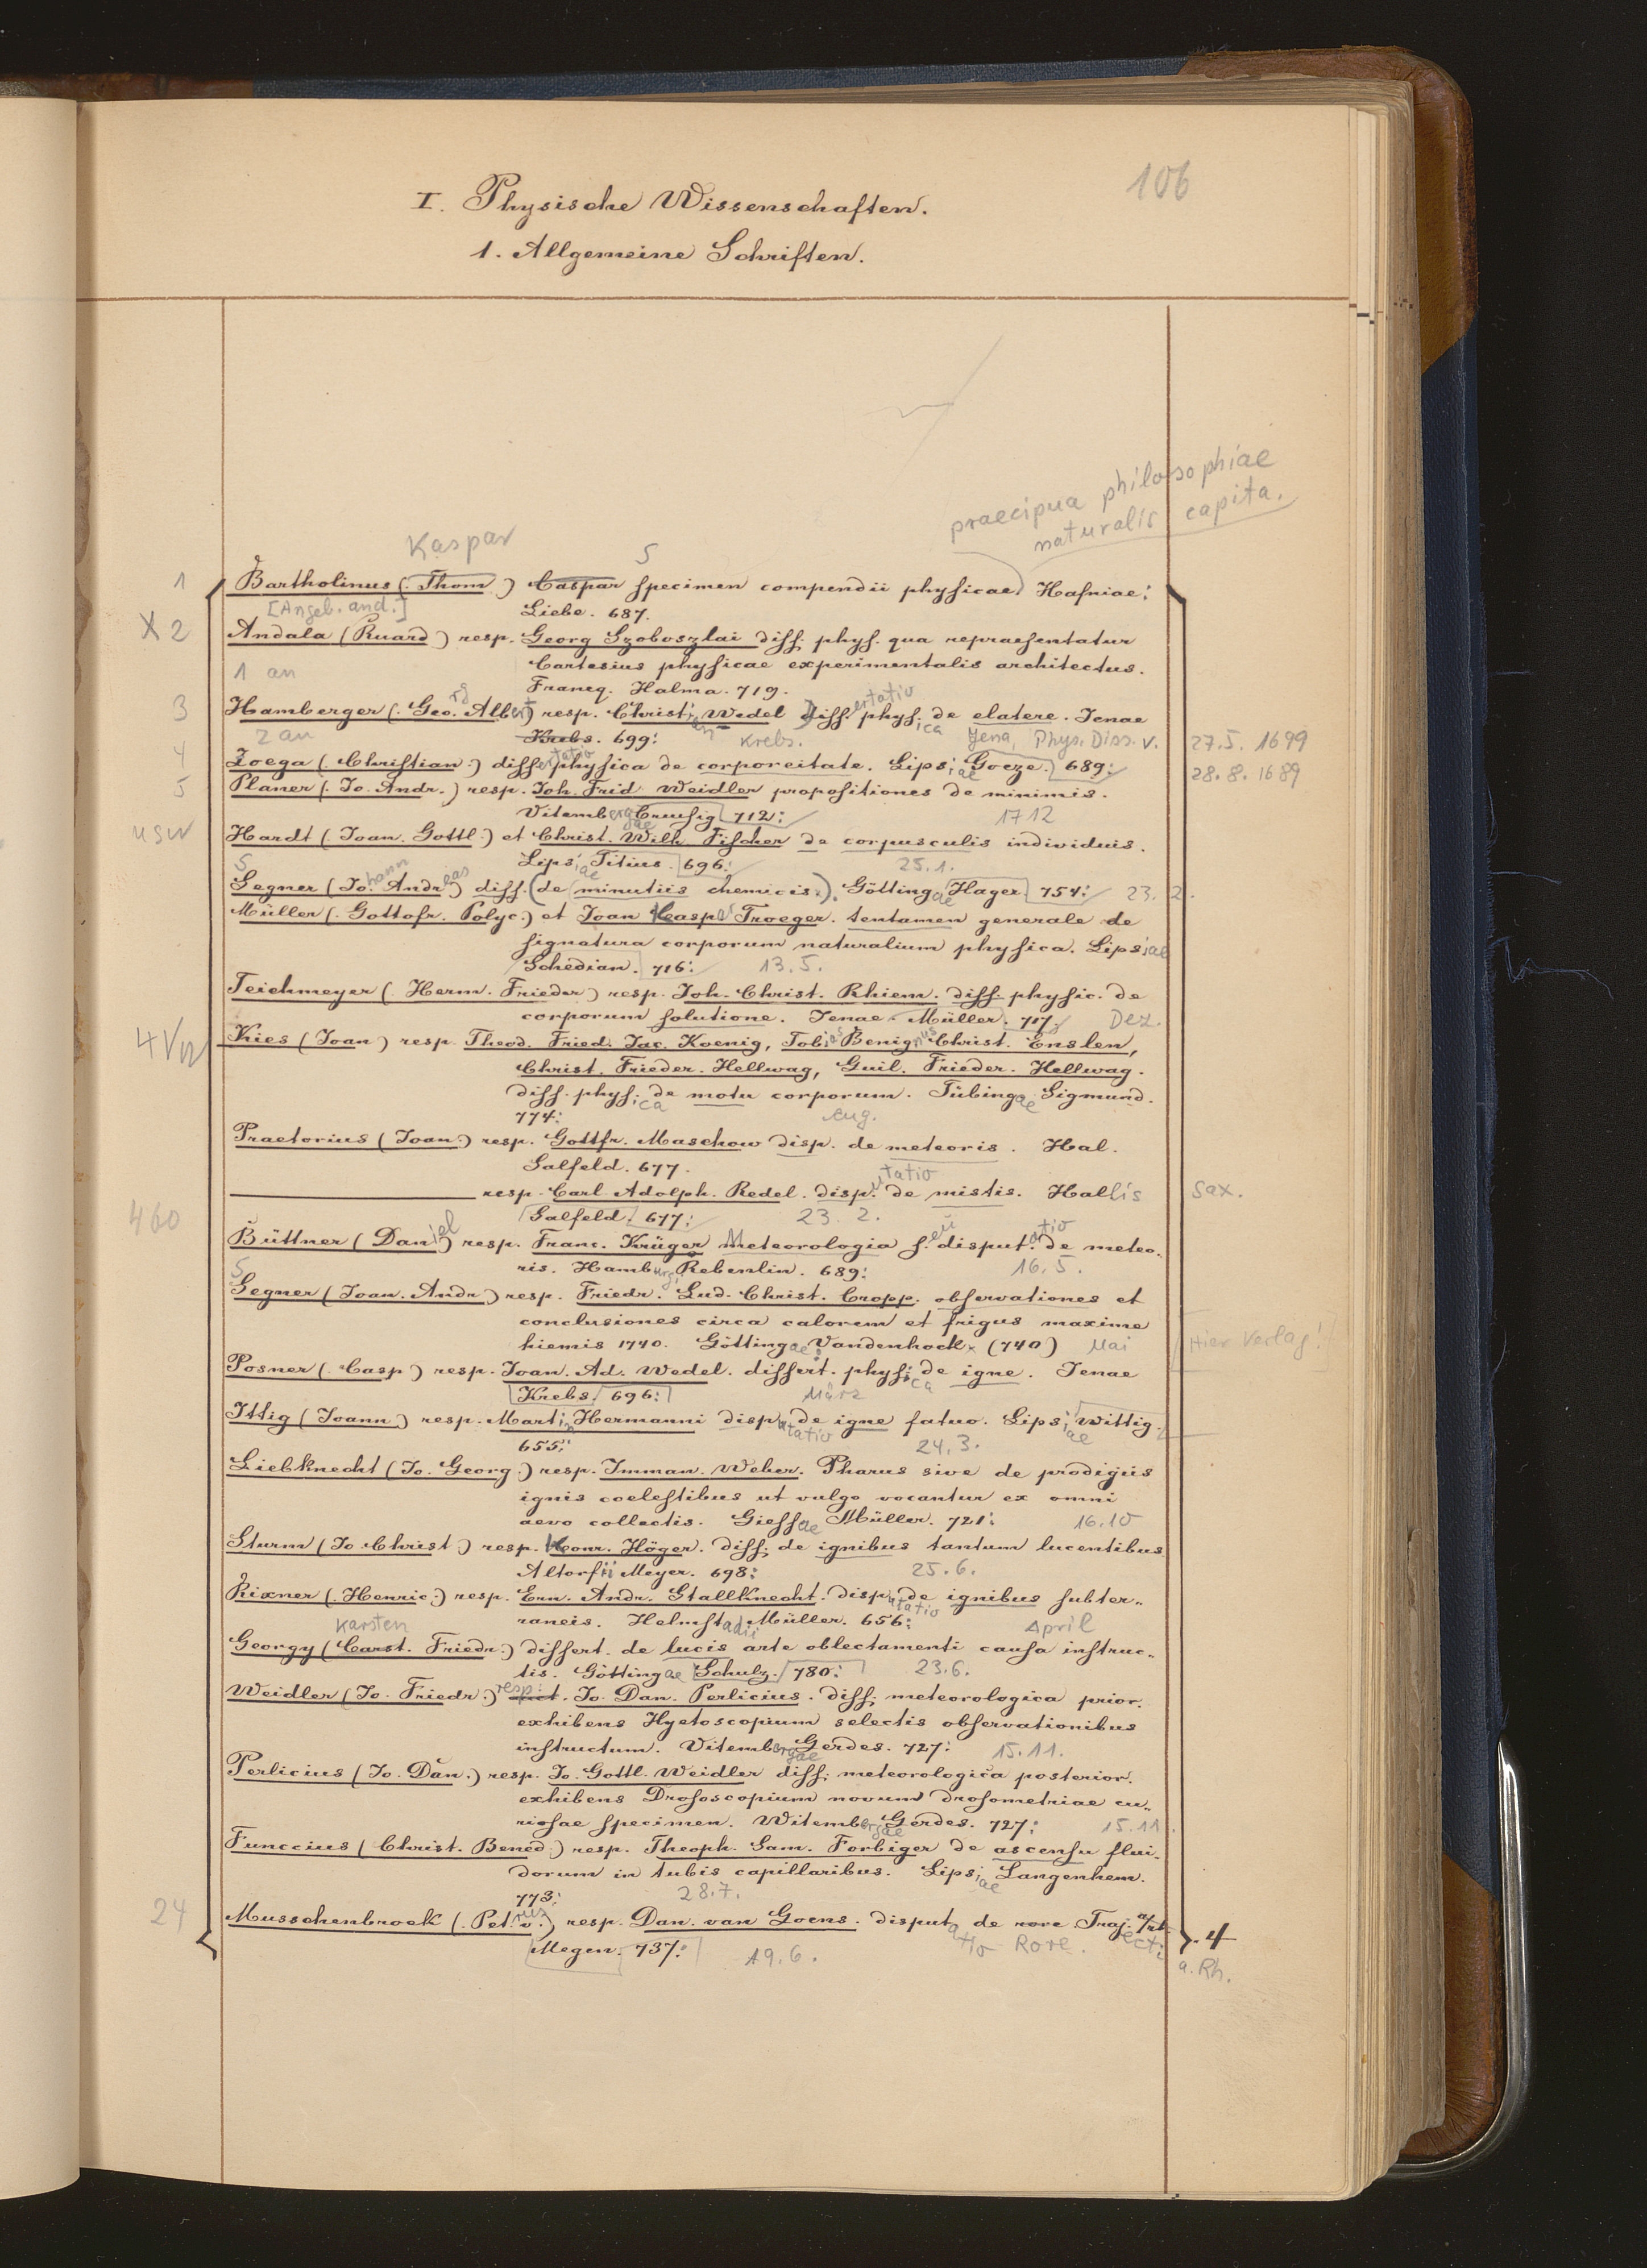 106
I. Physische Wissenschaften.
1. Allgemeine Schriften.
praecipua philosophiae
naturalis capita.
Kaspar S
1 Bartholinus (Thom.) Caspar specimen compendii physicae. Hafniae:
[Angeb. and.] Liebe. 687.
X 2 Andala (Ruard) resp. Georg Szoboszlai diss. phys. qua repraesentatur
1 an Cartesius physicae experimentalis architectus.
Franeq. Halma. 719.
3 Hamberger (Geo.rg Albert) resp. Christian Wedel Dissertatio physica de elatere. Jenae
2 an Krebs. 699: Krebs. Jena, Phys. Diss. v. 27.5.1699
4 Zoega (Christian.) dissertatio physica de corporeitate. Lipsiae Goeze. 689: 28.8.1689
5 Planer (Jo. Andr.) resp. Joh. Frid. Weidler propositiones de minimis.
Vitembergae Creusig 712: 1712
usw Hardt (Joan. Gottl.) et Christ. Wilh. Fischer de corpusculis individuis.
Lipsiae Titius. 696: 25.1.
Segner (Johann Andreas) diss. (de minutiis chemicis.). Göttingae Hager. 754: 23.2.
Müller (Gottofr. Polyc.) et Joan Kaspar Troeger. tentamen generale de
signatura corporum naturalium physica. Lipsiae
Schedian. 716: 13.5.
Teichmeyer (Herm. Frieder) resp. Joh. Christ. Rhiem. diss. physic. de
corporum solutione. Jenae. Müller. 717. Dez.
Kies (Joan) resp. Theod. Fried. Jac. Koenig, Tobias Benignus Christ. Enslen,
Christ. Frieder. Hellwag, Guil. Frieder. Hellwag.
diss. physica de motu corporum. Tübingae Sigmund.
774: Aug.
Praetorius (Joan.) resp. Gottfr. Maschow disp. de meteoris. Hal.
Salfeld. 677.
resp. Carl Adolph. Redel. disputatio de mistis. Hallis Sax.
460 Salfeld. 677: 23.2.
Büttner (Daniel) resp. Franc. Krüger Meteorologia seu disputatio de meteo-
ris. Hamburgi Rebenlin. 689: 16.5.
Segner (Joan. Andr.) resp. Friedr. Lud. Christ. Cropp. observationes et
conclusiones circa calorem et frigus maxime
hiemis 1740. Göttingae: Vandenhock. (740) Mai Hier Verlag!
Posner (Casp.) resp. Joan. Ad. Wedel. dissert. physica de igne. Jenae
Krebs. 696: März
Ittig (Joann) resp. Martin Hermanni disputatio de igne fatuo. Lipsiae Wittig.
655: 24.3.
Liebknecht (Jo. Georg.) resp. Imman. Weber. Pharus sive de prodigiis
ignis coelestibus ut vulgo vocantur ex omni
aevo collectis. Giessae Müller. 721: 16.10
Sturm (Jo Christ.) resp. Konr. Höger. diss. de ignibus tantum lucentibus.
Altorfii Meyer. 698: 25.6.
Rixner (Henric.) resp. Ern. Andr. Stallknecht. disputatio de ignibus subter-
raneis. Helmstadii Müller. 656: April
Karsten
Georgy (Carst. Friedr.) dissert. de lucis arte oblectamenti causa instruc-
tis. Göttingae Schulz. 780: 23.6.
Weidler (Jo. Friedr.) resp: auct. Jo. Dan. Perlicius. diss. meteorologica prior.
exhibens Hyetoscopium selectis observationibus
instructum. Vitembergae Gerdes. 727: 15.11.
Perlicius (Jo. Dan.) resp. Jo. Gottl. Weidler diss. meteorologica posterior.
exhibens Drososcopium novum drosometriae cu-
riosae specimen. Witembergae Gerdes. 727: 15.11.
Funccius (Christ. Bened.) resp. Theoph. Sam. Forbiger de ascensu flui-
dorum in tubis capillaribus. Lipsiae Langenhem.
773: 28.7.
24 Musschenbroek (Petrus v.) resp. Dan. van Goens. disputatio de rore Traj.ecti a/rh 4
Megen. 737: 19.6. Rore. a. Rh.